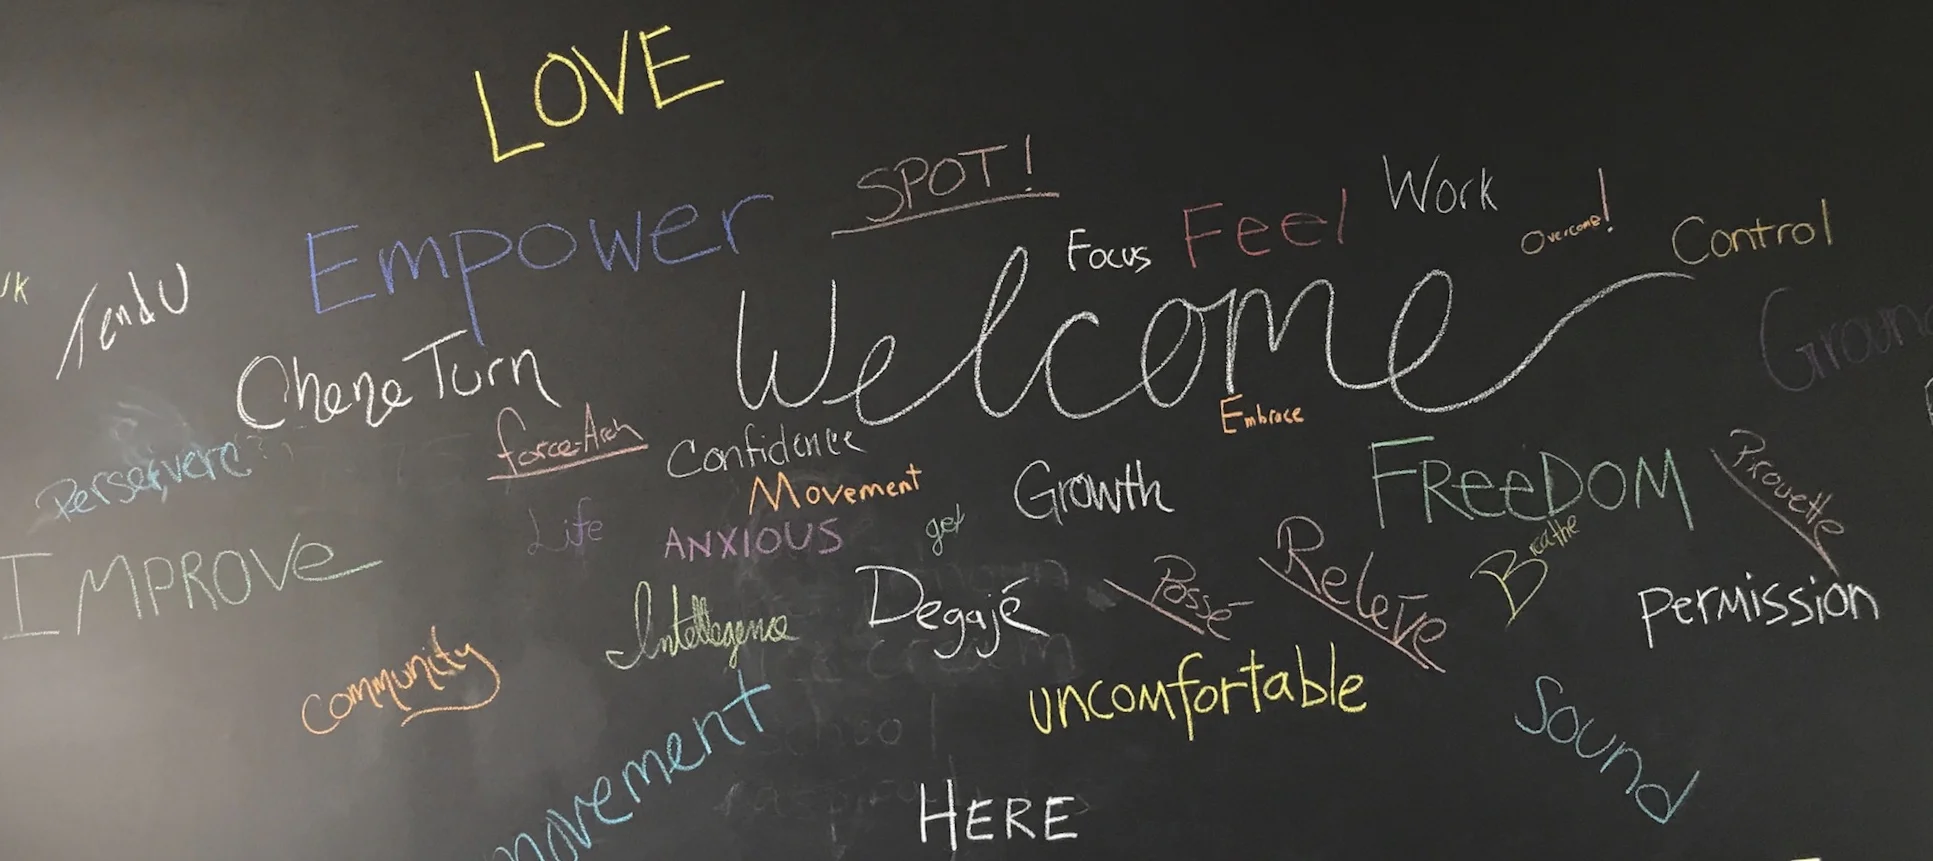 LOVE
SPOT!
Work
Empower
Focus
Feel
Overcome!
Control
TendU
Welcome
Chene Turn
Embrace
force-Arch
Confidence
Perservere?
Movement
Growth
FReeDOM
Pirouette
Life
ANXIOUS
get
IMPROVe
Breathe
Degajé
Passé
Relevē
Intellegence
permission
community
uncomfortable
movement
Sound
HERE